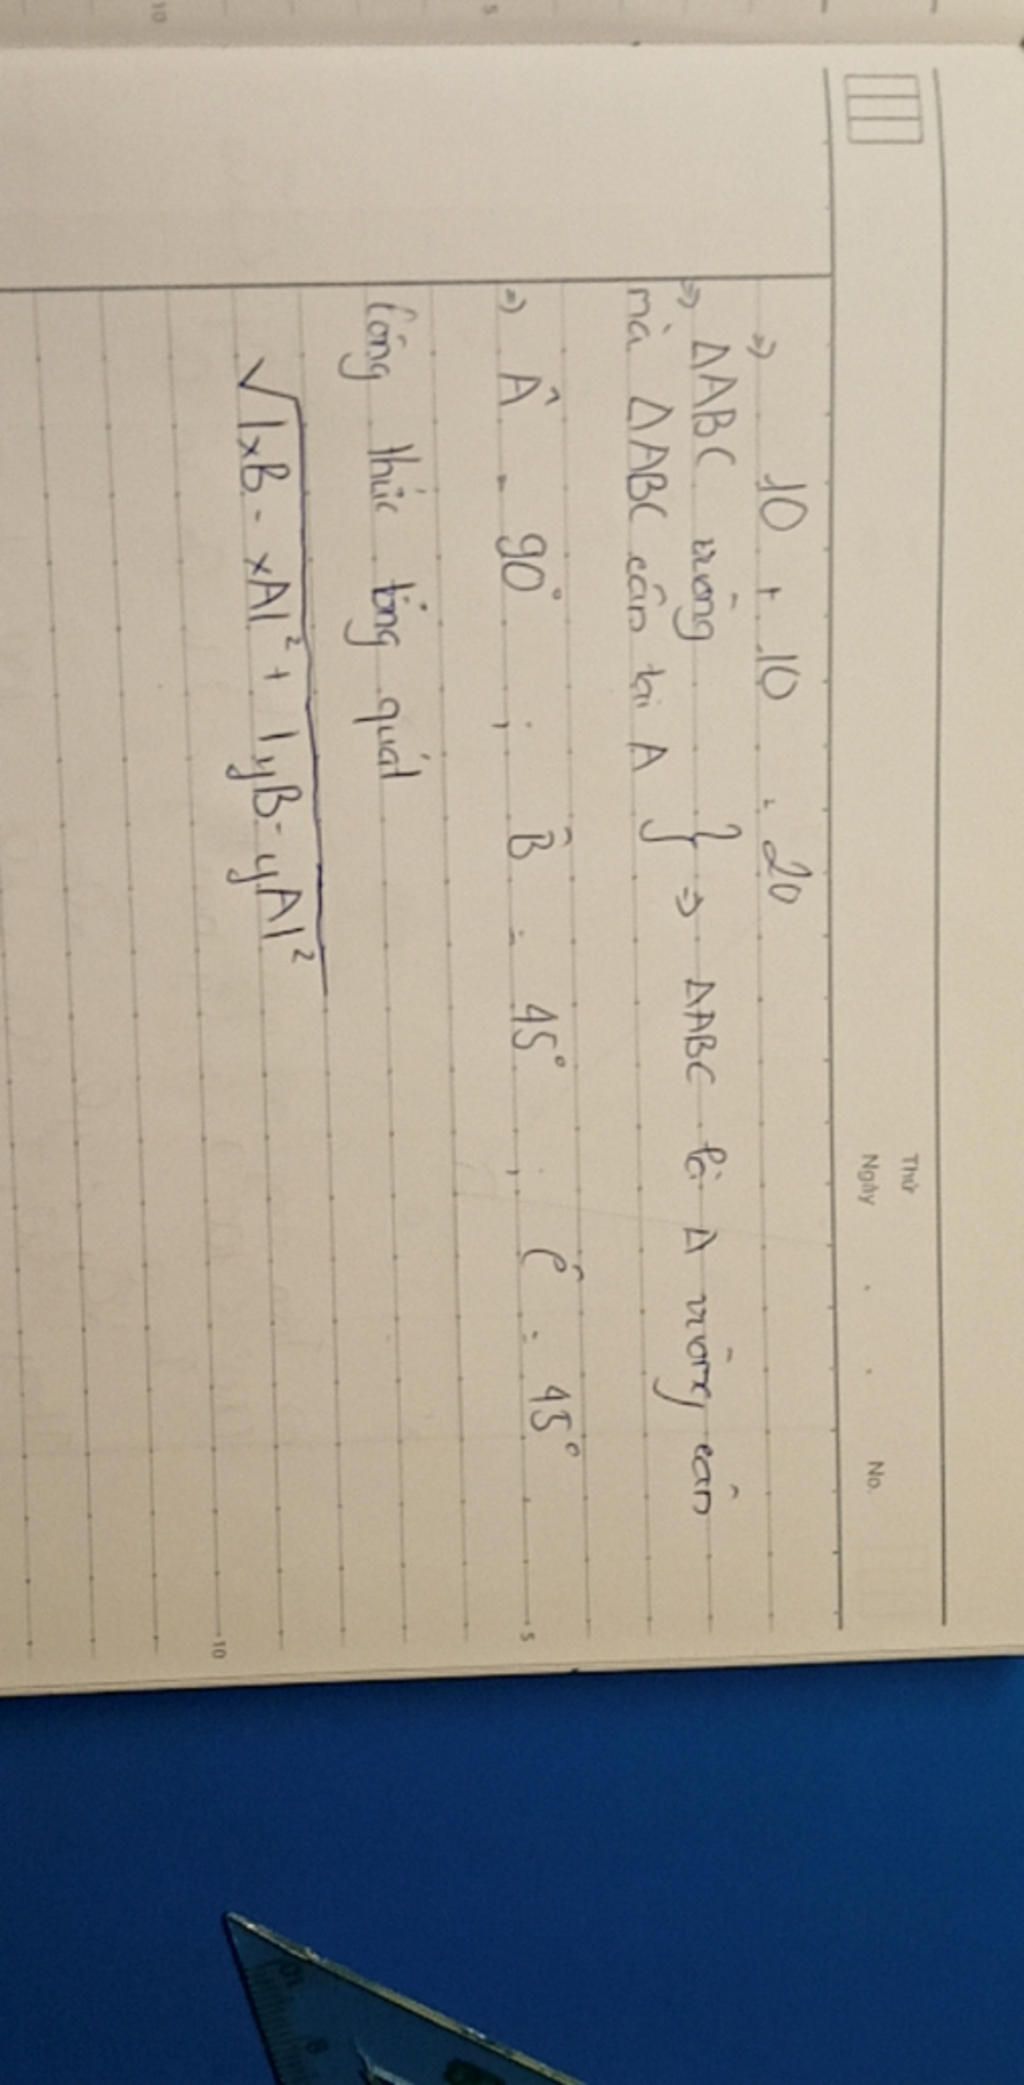 Thứ
Ngày . . No.
=> 10 + 10 = 20
=> ΔABC vuông
mà ΔABC cân tại A } => ΔABC là Δ vuông cân
=> Â = 90° ; B̂ = 45° ; Ĉ = 45°
5
Công thức tổng quát
√|xB - xA|² + |yB - yA|²
10